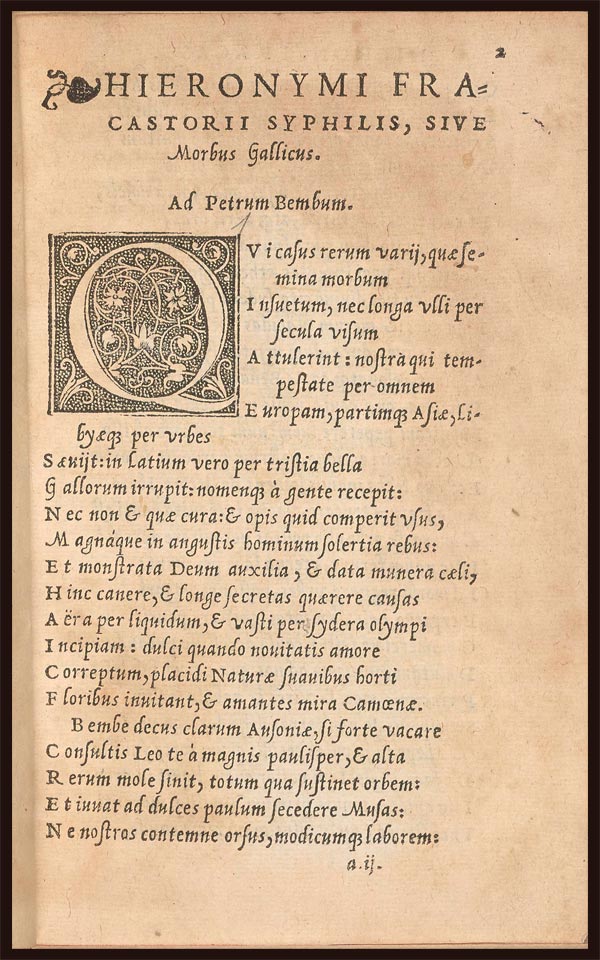 2
HIERONYMI FRA-
CASTORII SYPHILIS, SIVE
Morbus Gallicus.
Ad Petrum Bembum.
QVi casus rerum varij, quæ se-
mina morbum
Insuetum, nec longa vlli per
secula visum
Attulerint: nostra qui tem-
pestate per omnem
Europam, partimq; Asiæ, Li-
byæq; per vrbes
Sæuijt: in Latium vero per tristia bella
Gallorum irrupit: nomenq; à gente recepit:
Nec non & quæ cura: & opis quid comperit vsus,
Magnáque in angustis hominum solertia rebus:
Et monstrata Deum auxilia, & data munera cæli,
Hinc canere, & longe secretas quærere causas
Aëra per liquidum, & vasti per sydera olympi
Incipiam: dulci quando nouitatis amore
Correptum, placidi Naturæ suauibus horti
Floribus inuitant, & amantes mira Camœnæ.
Bembe decus clarum Ausoniæ, si forte vacare
Consultis Leo te à magnis paulisper, & alta
Rerum mole sinit, totum qua sustinet orbem:
Et iuuat ad dulces paulum secedere Musas:
Ne nostros contemne orsus, modicumq; laborem:
a.ij.